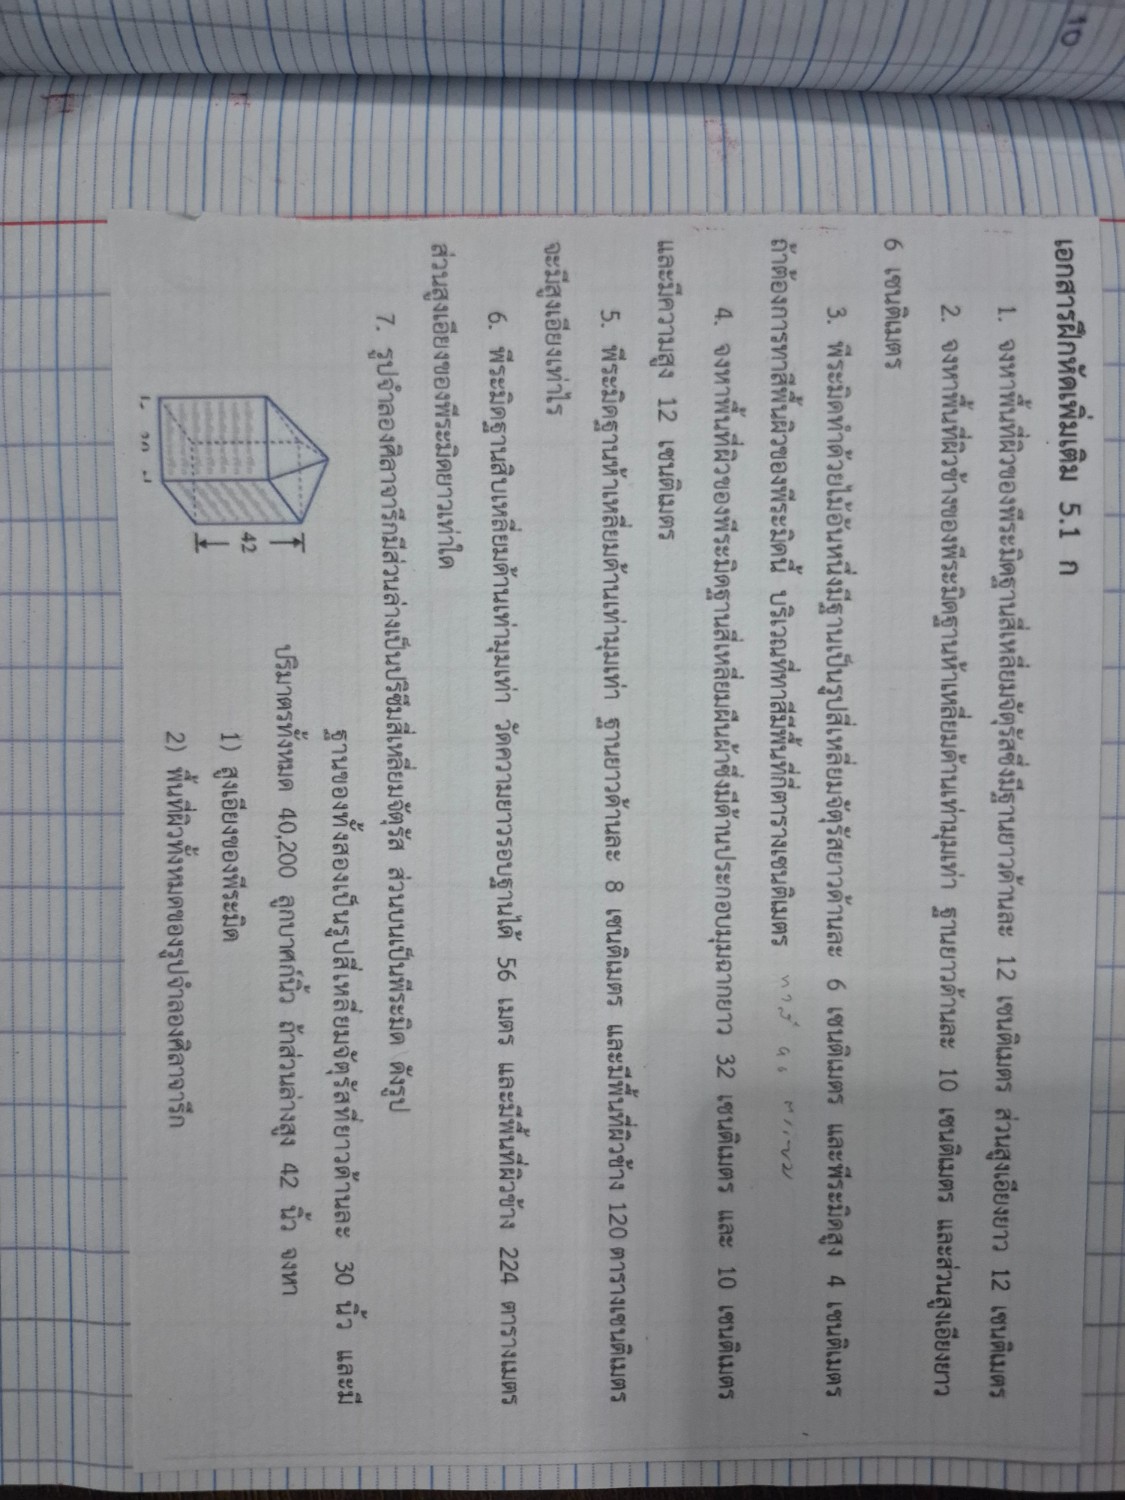 10
เอกสารฝึกหัดเพิ่มเติม 5.1 ก
1. จงหาพื้นที่ผิวของพีระมิดฐานสี่เหลี่ยมจัตุรัสซึ่งมีฐานยาวด้านละ 12 เซนติเมตร ส่วนสูงเอียงยาว 12 เซนติเมตร
2. จงหาพื้นที่ผิวข้างของพีระมิดฐานห้าเหลี่ยมด้านเท่ามุมเท่า ฐานยาวด้านละ 10 เซนติเมตร และส่วนสูงเอียงยาว
6 เซนติเมตร
3. พีระมิดทำด้วยไม้อันหนึ่งมีฐานเป็นรูปสี่เหลี่ยมจัตุรัสยาวด้านละ 6 เซนติเมตร และพีระมิดสูง 4 เซนติเมตร
ถ้าต้องการทาสีพื้นผิวของพีระมิดนี้ บริเวณที่ทาสีมีพื้นที่กี่ตารางเซนติเมตร
4. จงหาพื้นที่ผิวของพีระมิดฐานสี่เหลี่ยมผืนผ้าซึ่งมีด้านประกอบมุมฉากยาว 32 เซนติเมตร และ 10 เซนติเมตร
และมีความสูง 12 เซนติเมตร
5. พีระมิดฐานห้าเหลี่ยมด้านเท่ามุมเท่า ฐานยาวด้านละ 8 เซนติเมตร และมีพื้นที่ผิวข้าง 120 ตารางเซนติเมตร
จะมีสูงเอียงเท่าไร
6. พีระมิดฐานสิบเหลี่ยมด้านเท่ามุมเท่า วัดความยาวรอบฐานได้ 56 เมตร และมีพื้นที่ผิวข้าง 224 ตารางเมตร
ส่วนสูงเอียงของพีระมิดยาวเท่าใด
7. รูปจำลองศิลาจารึกมีส่วนล่างเป็นปริซึมสี่เหลี่ยมจัตุรัส ส่วนบนเป็นพีระมิด ดังรูป
ฐานของทั้งสองเป็นรูปสี่เหลี่ยมจัตุรัสที่ยาวด้านละ 30 นิ้ว และมี
ปริมาตรทั้งหมด 40,200 ลูกบาศก์นิ้ว ถ้าส่วนล่างสูง 42 นิ้ว จงหา
42
1) สูงเอียงของพีระมิด
2) พื้นที่ผิวทั้งหมดของรูปจำลองศิลาจารึก